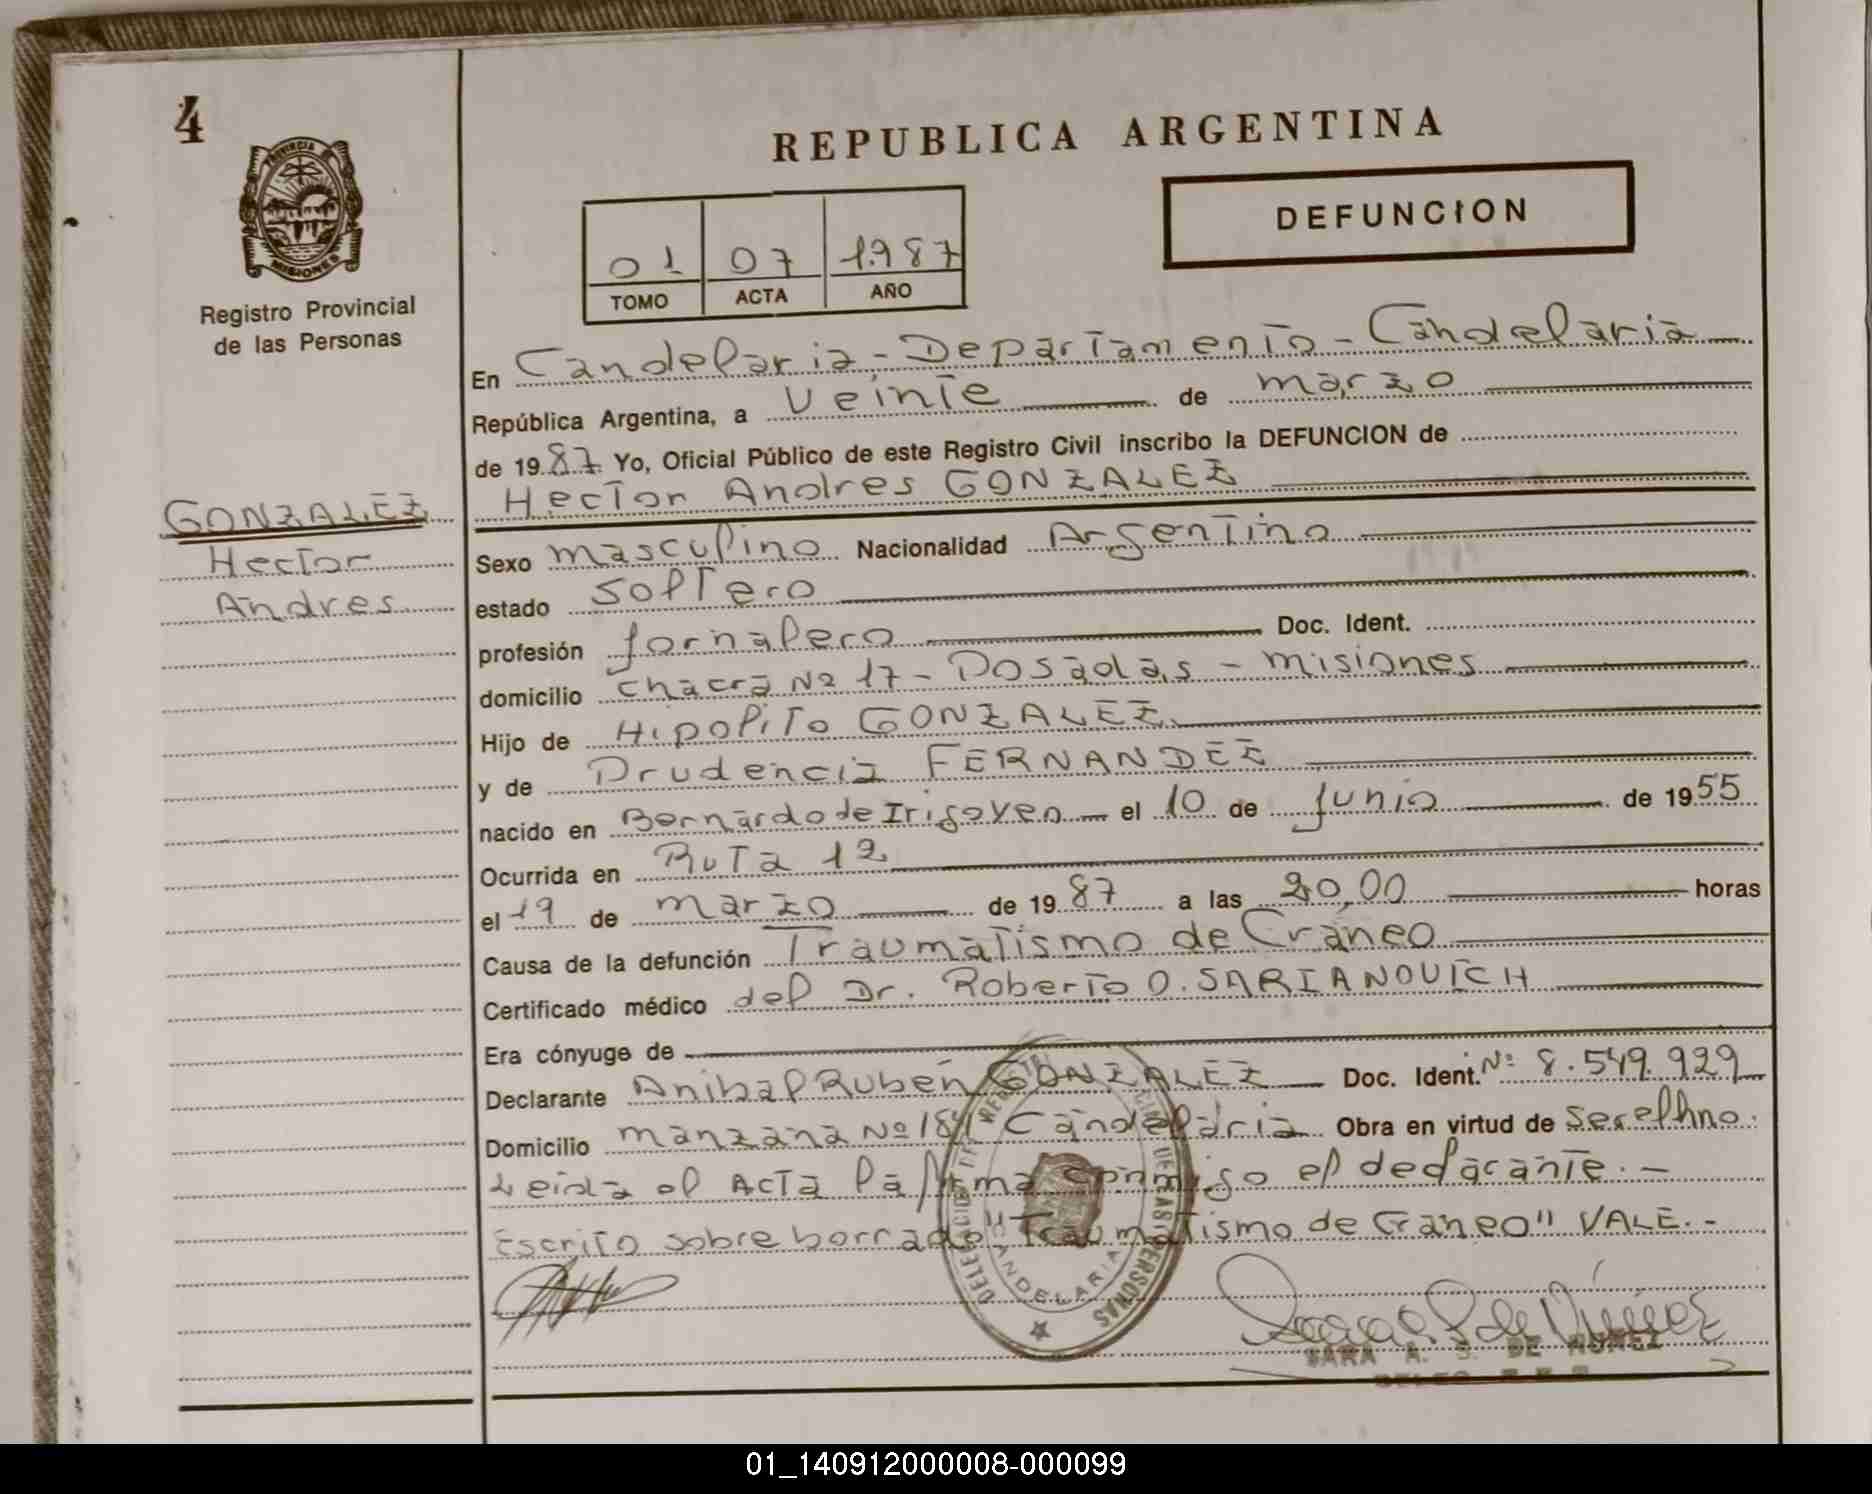 4
PROVINCIA DE
MISIONES
Registro Provincial
de las Personas
GONZALEZ
Hector
Andres
REPUBLICA ARGENTINA
DEFUNCION
01 07 1.987
TOMO ACTA AÑO
En Candelaria - Departamento - Candelaria
República Argentina, a Veinte de marzo
de 1987 Yo, Oficial Público de este Registro Civil inscribo la DEFUNCION de
Hector Andres GONZALEZ
Sexo masculino Nacionalidad Argentino
estado soltero
profesión jornalero Doc. Ident.
domicilio chacra Nº 17 - Posadas - misiones
Hijo de Hipolito GONZALEZ
y de Prudencia FERNANDEZ
nacido en Bernardo de Irigoyen el 10 de junio de 1955
Ocurrida en Ruta 12
el 19 de marzo de 1987 a las 20,00 horas
Causa de la defunción Traumatismo de Craneo
Certificado médico del Dr. Roberto O. SARIANOVICH
Era cónyuge de
Declarante Anibal Ruben GONZALEZ Doc. Ident. Nº 8.549.929
Domicilio manzana Nº 181 Candelaria Obra en virtud de ser el hno.
Leida el Acta la firma conmigo el declarante. -
Escrito sobre borrado "Traumatismo de Craneo" VALE. -
CANDELARIA
SARA A. S. DE NUÑEZ
01_140912000008-000099